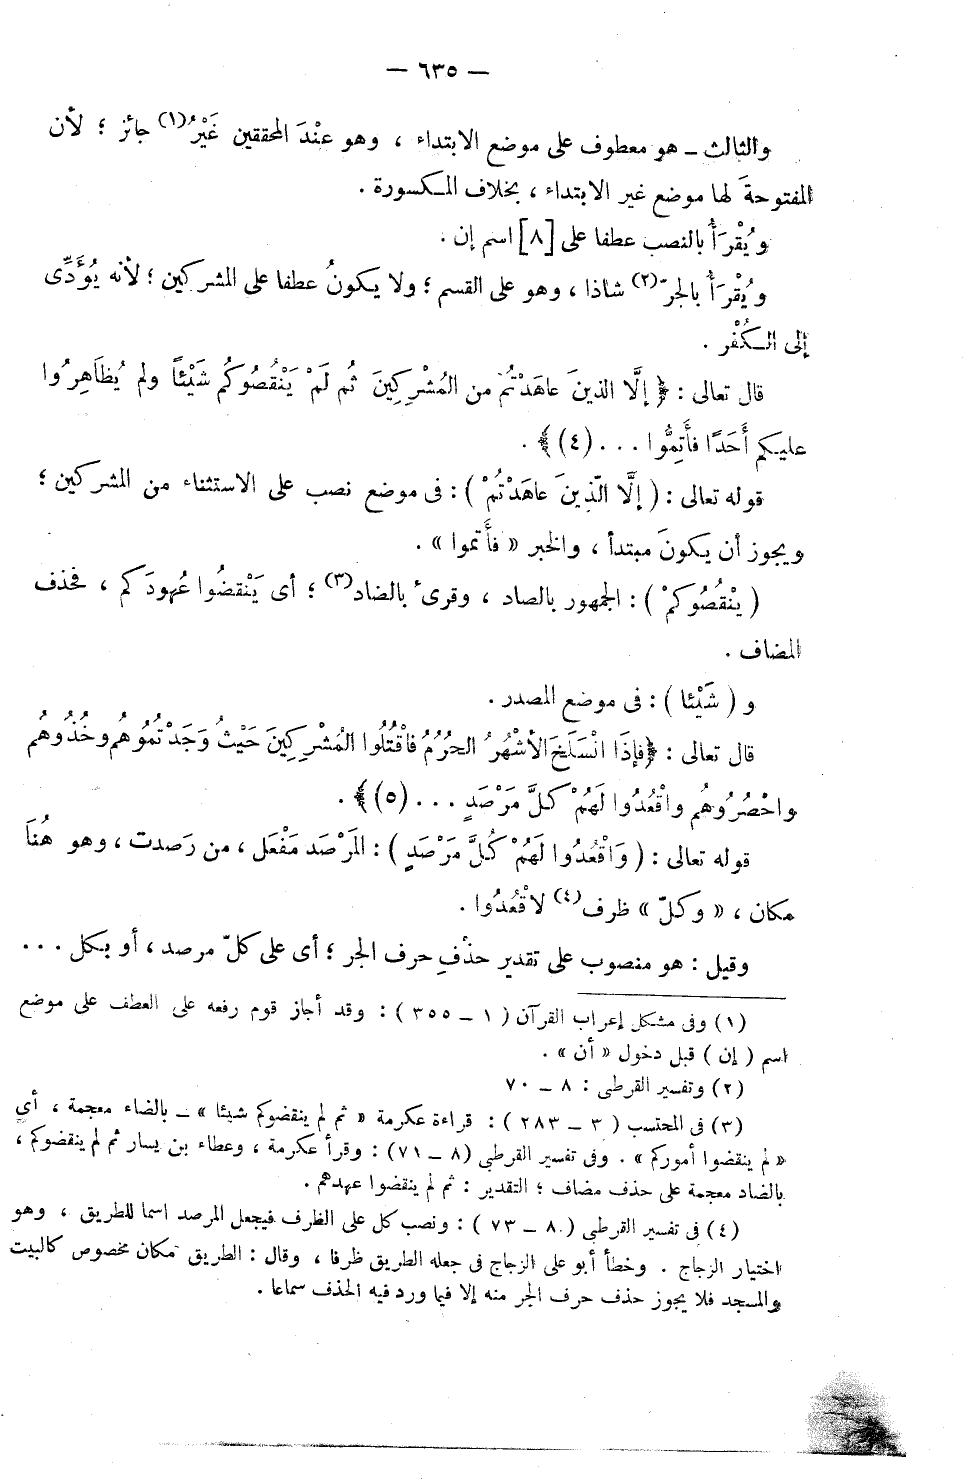 — ٦٣٥ —
والثالث ـ هو معطوف على موضع الابتداء ، وهو عنْدَ المحققين غَيْرُ(١) جائز ؛ لأن
المفتوحةَ لها موضع غير الابتداء ، بخلاف المكسورة .
ويُقْرَأُ بالنصب عطفا على [٨] اسم إن .
ويُقْرَأُ بالجر(٢) شاذا ، وهو على القسم ؛ ولا يكونُ عطفا على المشركين ؛ لأنه يُؤَدِّى
إلى الكُفْر .
قال تعالى : ﴿ إلَّا الذينَ عاهَدْتُم من المُشْرِكِينَ ثُم لَمْ يَنْقُصُوكُم شَيْئاً ولم يُظاهِرُوا
عليكم أَحَدًا فأَتِمُّوا ... (٤)﴾ .
قوله تعالى : ( إلَّا الَّذِينَ عاهَدْتُمْ ) : فى موضع نصب على الاستثناء من المشركين ؛
ويجوز أن يكونَ مبتدأ ، والخبر « فأَتموا » .
( يَنْقُصُوكمْ ) : الجمهور بالصاد ، وقرىء بالضاد(٣) ؛ أى يَنْقضُوا عُهودَكم ، فحذف
المضاف .
و ( شَيْئا ) : فى موضع المصدر .
قال تعالى : ﴿فإذَا انْسَلَخَ الأشْهُرُ الحرُمُ فاقْتُلُوا المُشْرِكِينَ حَيْثُ وَجَدْتُمُوهُم وخُذُوهُم
واحْصُرُوهُم واقْعُدُوا لَهُمْ كلَّ مَرْصَدٍ ... (٥)﴾ .
قوله تعالى : ( وَاقْعُدُوا لَهُمْ كُلَّ مَرْصَدٍ ) : المَرْصَد مَفْعَل ، من رَصدت ، وهو هُنَا
مكان ، « وكلّ » ظرف(٤) لاقْعُدُوا .
وقيل : هو منصوب على تقدير حذْفِ حرف الجر ؛ أى على كلّ مرصد ، أو بكل ...
(١) وفى مشكل إعراب القرآن ( ١ – ٣٥٥ ) : وقد أجاز قوم رفعه على العطف على موضع
اسم ( إن ) قبل دخول « أن » .
(٢) وتفسير القرطبى : ٨ – ٧٠
(٣) فى المحتسب ( ٣ – ٢٨٣ ) : قراءة عكرمة « ثم لم ينقضوكم شيئا » – بالضاء معجمة ، أي
« لم ينقضوا أموركم » . وفى تفسير القرطبى (٨ – ٧١) : وقرأ عكرمة ، وعطاء بن يسار ثم لم ينقضوكم ،
بالضاد معجمة على حذف مضاف ؛ التقدير : ثم لم ينقضوا عهدهم .
(٤) فى تفسير القرطبى (٨ – ٧٣ ) : ونصب كل على الظرف فيجعل المرصد اسما للطريق ، وهو
اختيار الزجاج . وخطأ أبو على الزجاج فى جعله الطريق ظرفا ، وقال : الطريق مكان مخصوص كالبيت
والمسجد فلا يجوز حذف حرف الجر منه إلا فيما ورد فيه الحذف سماعا .